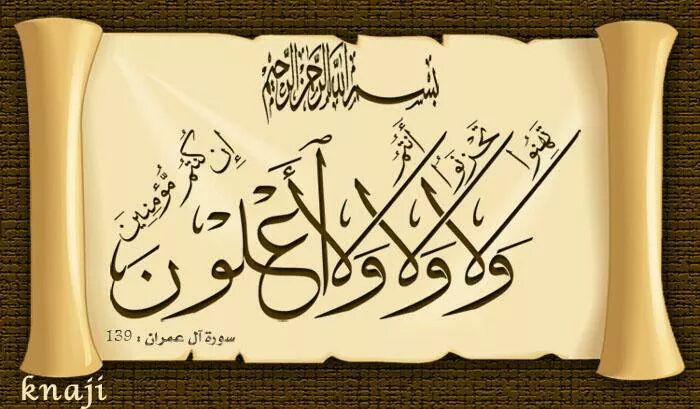 بسم الله الرحمن الرحيم
ولا تهنوا ولا تحزنوا وأنتم الأعلون إن كنتم مؤمنين
سورة آل عمران : 139
knaji